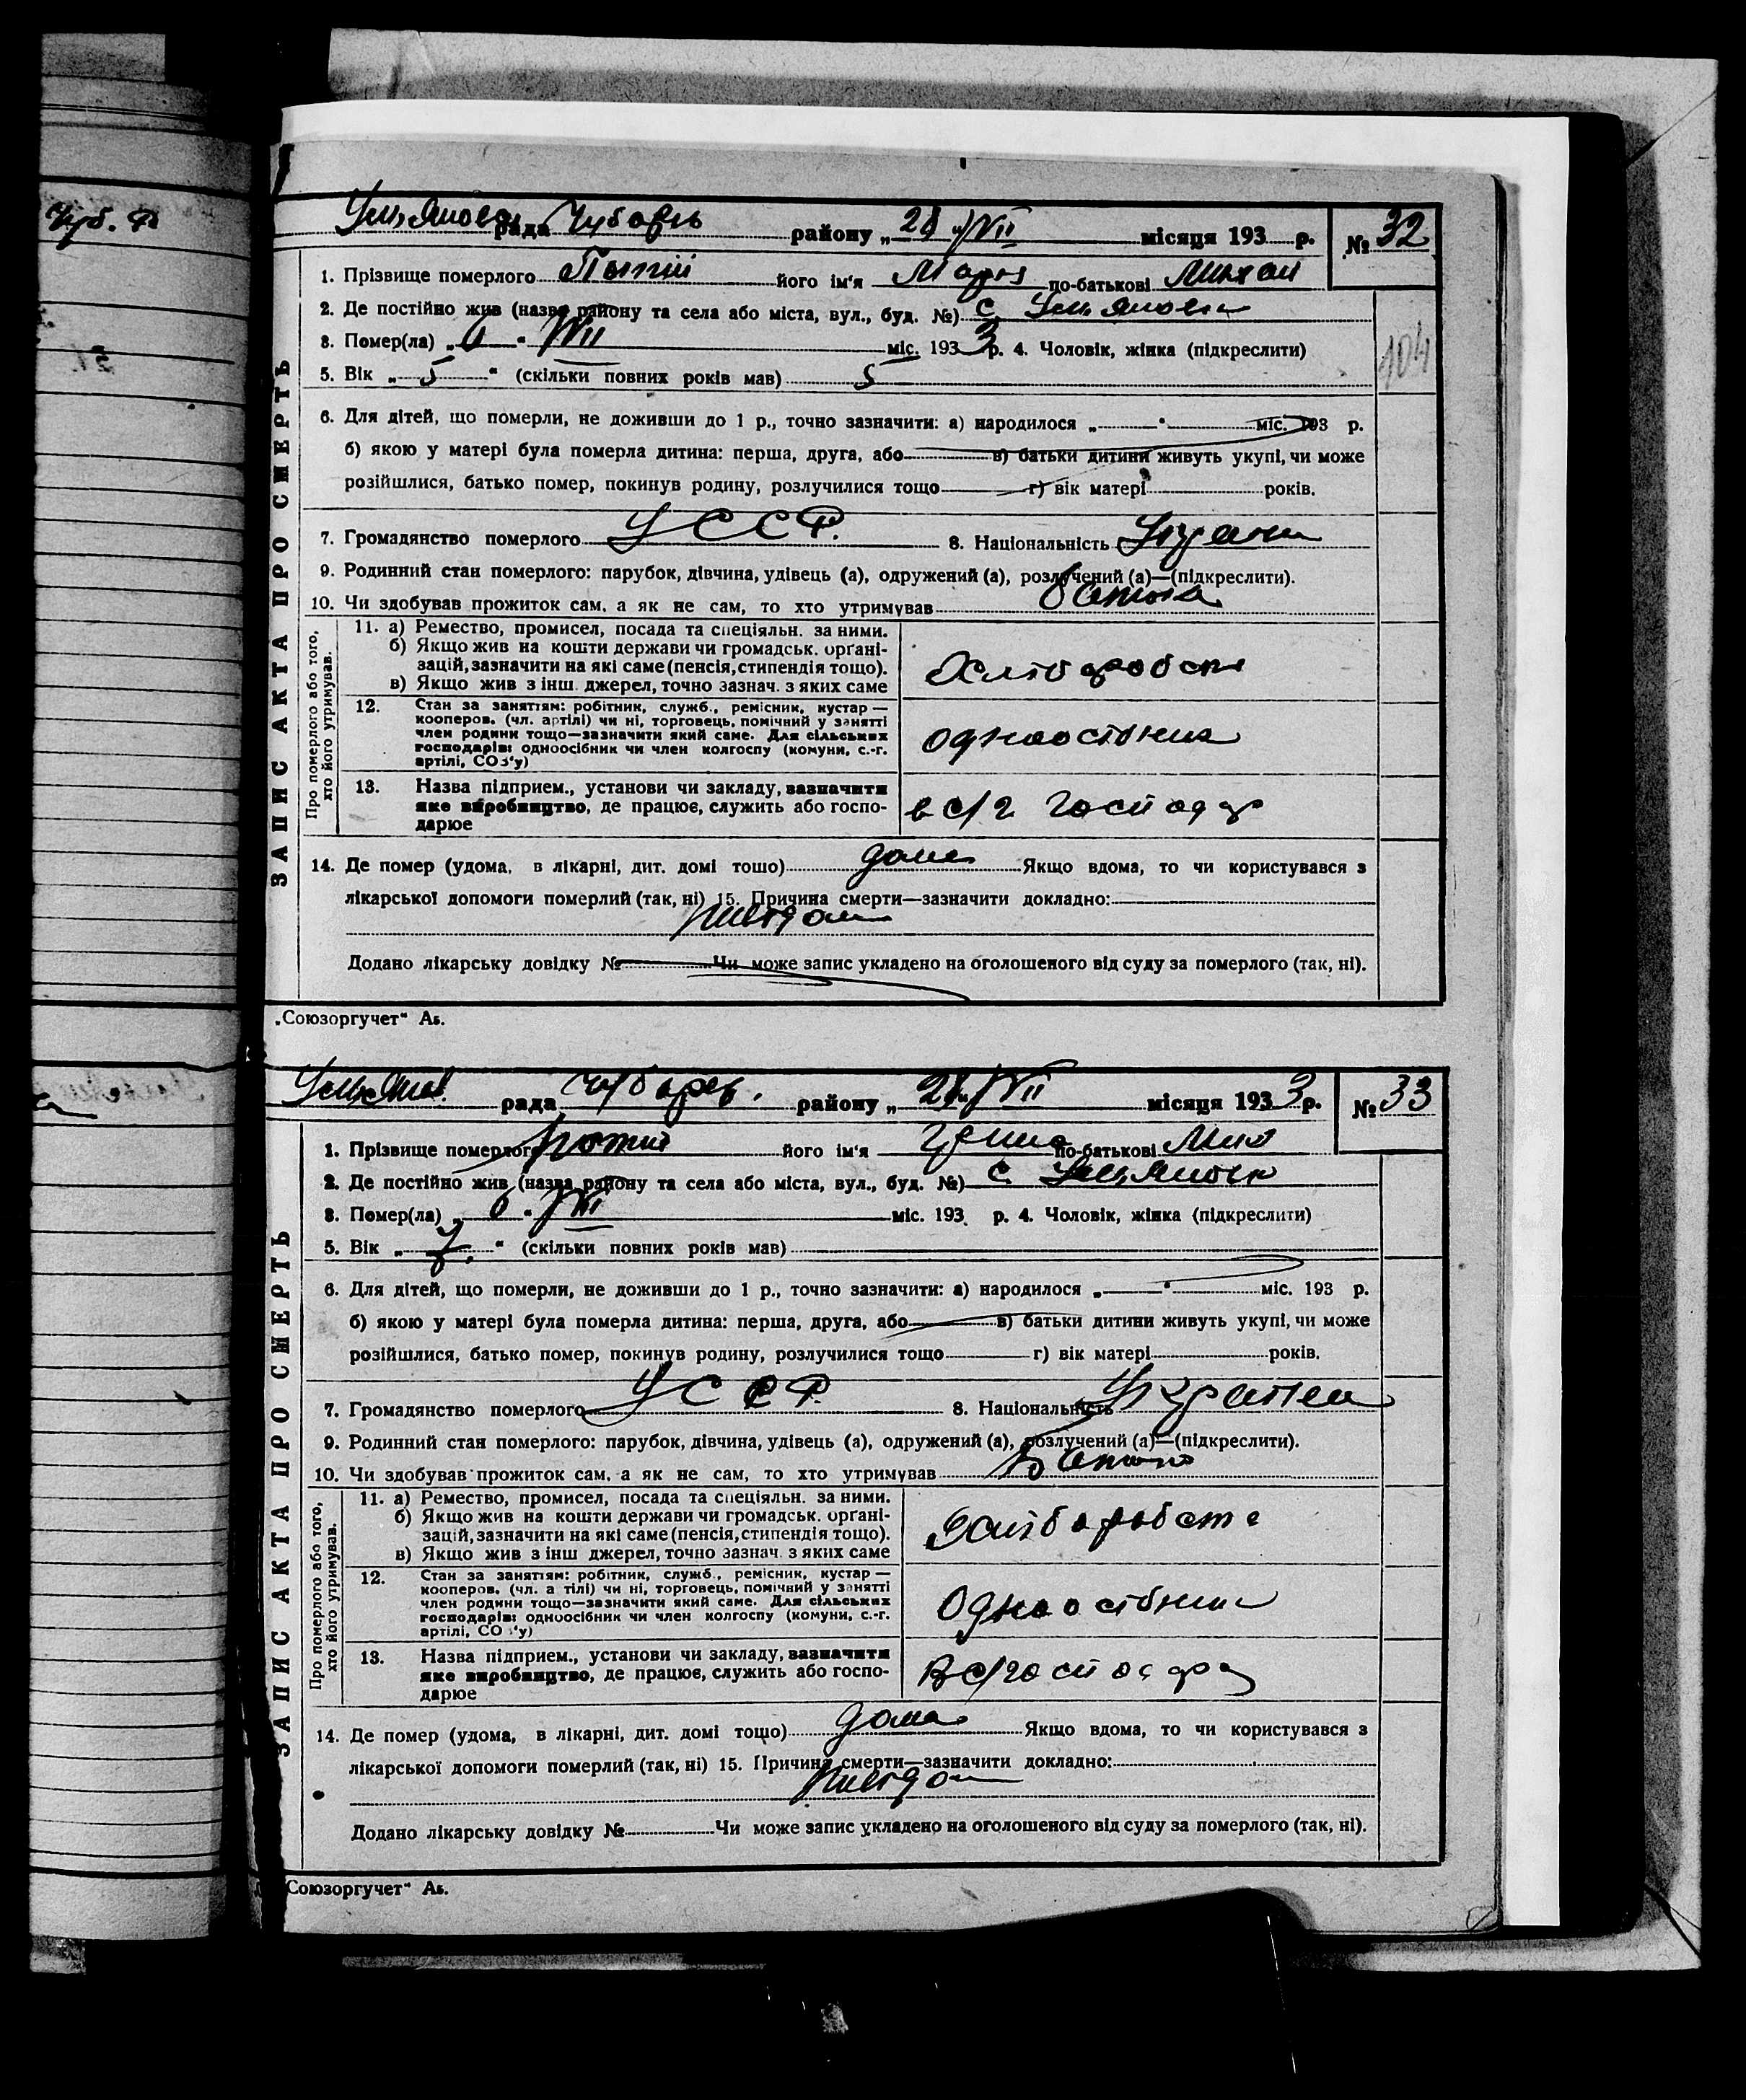 Чуб. Ф
рада Чубарев району „28" VII місяця 193 р. № 32
ЗАПИС АКТА ПРО СМЕРТЬ
1. Прізвище померлого його ім'я по-батькові Михай
2. Де постійно жив (назва району та села або міста, вул., буд. №) с.
3. Помер(ла) „6" VII міс. 1933 р. 4. Чоловік, жінка (підкреслити)
5. Вік „5" (скільки повних років мав) 5
104
6. Для дітей, що померли, не доживши до 1 р., точно зазначити: а) народилося „ " міс. 193 р.
б) якою у матері була померла дитина: перша, друга, або в) батьки дитини живуть укупі, чи може
розійшлися, батько помер, покинув родину, розлучилися тощо г) вік матері років.
7. Громадянство померлого УССР. 8. Національність Украин
9. Родинний стан померлого: парубок, дівчина, удівець (а), одружений (а), розлучений (а)—(підкреслити).
10. Чи здобував прожиток сам, а як не сам, то хто утримував батько
Про померлого або того, хто його утримував.
11. а) Ремество, промисел, посада та спеціяльн. за ними.
б) Якщо жив на кошти держави чи громадськ. органі-
зацій, зазначити на які саме (пенсія, стипендія тощо).
в) Якщо жив з інш. джерел, точно зазнач. з яких саме
12. Стан за заняттям: робітник, служб., ремісник, кустар —
кооперов. (чл. артілі) чи ні, торговець, помічний у занятті
член родини тощо—зазначити який саме. Для сільських
господарів: одноосібник чи член колгоспу (комуни, с.-г.
артілі, СОЗ'у)
одноосібник
13. Назва підприєм., установи чи закладу, зазначити
яке виробництво, де працює, служить або госпо-
дарює
в с/г господар
14. Де помер (удома, в лікарні, дит. домі тощо) дома Якщо вдома, то чи користувався з
лікарської допомоги померлий (так, ні) 15. Причина смерти—зазначити докладно:
Додано лікарську довідку № Чи може запис укладено на оголошеного від суду за померлого (так, ні).
„Союзоргучет" Аб.
рада Чубарев. району „28" VII місяця 1933 р. № 33
ЗАПИС АКТА ПРО СМЕРТЬ
1. Прізвище померлого його ім'я по-батькові Мих
2. Де постійно жив (назва району та села або міста, вул., буд. №) с.
3. Помер(ла) „6" VII міс. 193 р. 4. Чоловік, жінка (підкреслити)
5. Вік „7." (скільки повних років мав)
6. Для дітей, що померли, не доживши до 1 р., точно зазначити: а) народилося „ " міс. 193 р.
б) якою у матері була померла дитина: перша, друга, або в) батьки дитини живуть укупі, чи може
розійшлися, батько помер, покинув родину, розлучилися тощо г) вік матері років.
7. Громадянство померлого УССР. 8. Національність
9. Родинний стан померлого: парубок, дівчина, удівець (а), одружений (а), розлучений (а)—(підкреслити).
10. Чи здобував прожиток сам, а як не сам, то хто утримував Батько
Про померлого або того, хто його утримував.
11. а) Ремество, промисел, посада та спеціяльн. за ними.
б) Якщо жив на кошти держави чи громадськ. органі-
зацій, зазначити на які саме (пенсія, стипендія тощо).
в) Якщо жив з інш джерел, точно зазнач. з яких саме
12. Стан за заняттям: робітник, служб., ремісник, кустар —
кооперов. (чл. а тілі) чи ні, торговець, помічний у занятті
член родини тощо—зазначити який саме. Для сільських
господарів: одноосібник чи член колгоспу (комуни, с.-г.
артілі, СО 'у)
Одноосібник
13. Назва підприєм., установи чи закладу, зазначити
яке виробництво, де працює, служить або госпо-
дарює
В с/господар
14. Де помер (удома, в лікарні, дит. домі тощо) дома Якщо вдома, то чи користувався з
лікарської допомоги померлий (так, ні) 15. Причина смерти—зазначити докладно:
Додано лікарську довідку № Чи може запис укладено на оголошеного від суду за померлого (так, ні).
Союзоргучет" Аб.